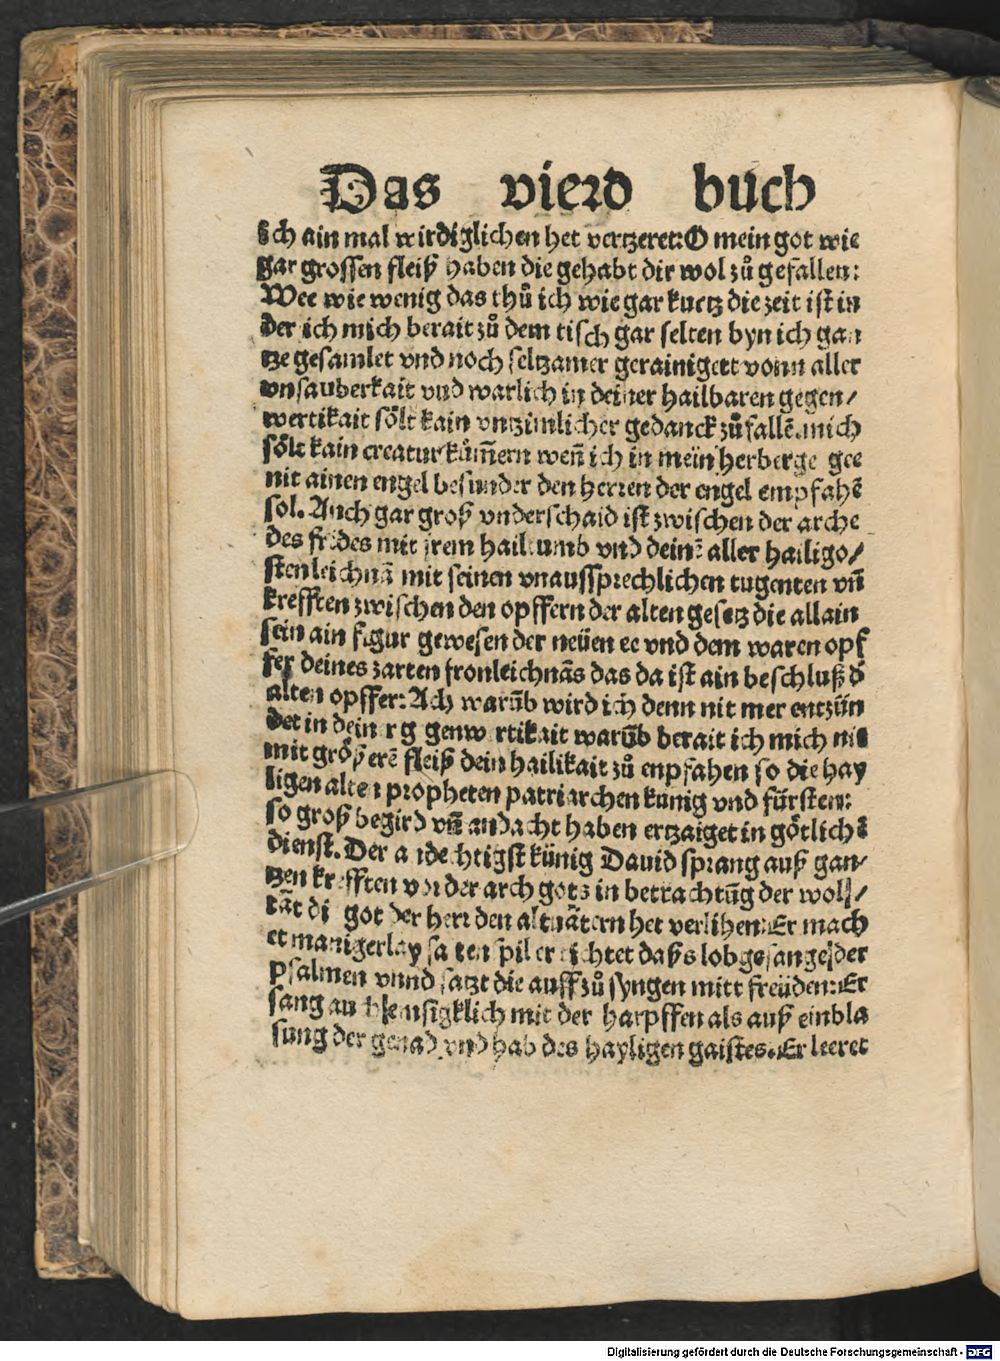 Das vierd buch
ich ain mal wirdiglichen het vertzeret: O mein got wie
gar grossen fleiß haben die gehabt dir wol zů gefallen:
Wee wie wenig das thů ich wie gar kurtz die zeit ist in
der ich mich berait zů dem tisch gar selten byn ich gan
tze gesamlet vnd noch seltzamer gerainigett vonn aller
vnsauberkait vnd warlich in deiner hailbaren gegen/
wertikait sölt kain vntzimlicher gedanck zůfallē. mich
sölt kain creatur kům̄ern wen̄ ich in mein herberge gee
nit ainen engel besunder den herren der engel empfahē
sol. Auch gar groß vnderschaid ist zwischen der arche
des frides mit jrem hailtumb vnd deinē aller hailigo/
sten leichnā mit seinen vnaussprechlichen tugenten vn̄
krefften zwischen den opffern der alten gesetz die allain
sein ain figur gewesen der neüen ee vnd dem waren opf
fer deines zarten fronleichnās das da ist ain beschluß d̄
alten opffer: Ach warūb wird ich denn nit mer entzün
det in dein r g genw rtikait warūb berait ich mich nit
mit größerē fleiß dein hailikait zů enpfahen so die hay
ligen alten propheten patriarchen künig vnd fürsten:
so groß begird vn̄ andacht haben ertzaiget in götlichē
dienst. Der andechtigst künig Dauid sprang auß gan/
tzen krefften vor der arch gots in betrachtūg der wol/
tāt di got der herr den altuätern het verlihen: Er mach
et manigerlay saiten spil er tichtet daßs lobgesange der
psalmen vnnd satzt die auff zů syngen mitt freüden: Er
sang auch emsigklich mit der harpffen als auß einbla
sung der genad vnd hab des hayligen gaistes. Er leeret
Digitalisierung gefördert durch die Deutsche Forschungsgemeinschaft - DFG